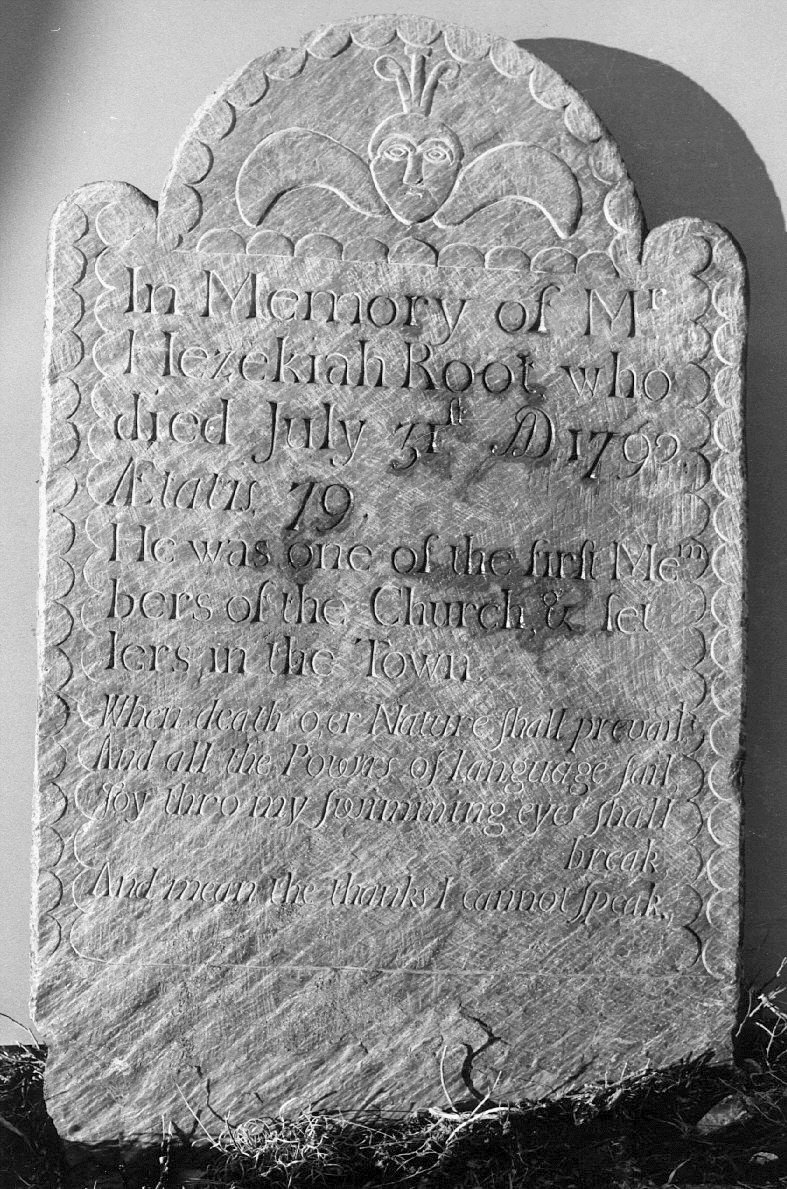 In Memory of Mʳ
Hezekiah Root, who
died July 31ˢᵗ AD 1792.
Ætatis. 79.
He was one of the first Meᵐ
bers of the Church, & set
lers in the Town.
When death o'er Nature shall prevail
And all the Powers of language fail,
Joy thro my swimming eyes shall
break
And mean the thanks I cannot speak.